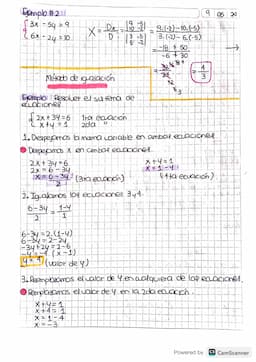 Ejemplo # 2:
9 05 21
{3x - 5y = 9
{6x - 2y = 10
X = Dx / D =
9 -5
10 -2
3 -5
6 -2
= 9.(-2) - 10.(-5) / 3.(-2) - 6.(-5)
= -18 + 50 / -6 + 30
= 4 / 3
Método de igualación
Ejemplo: Resolver el sistema de
ecuaciones
{2x + 3y = 6 1ra ecuación
{x + y = 1 2da "
1. Despejamos la misma variable en ambas ecuaciones
Despejamos X en ambas ecuaciones.
2x + 3y = 6
x + y = 1
2x = 6 - 3y
x = 1 - y
x = 6 - 3y / 2 (3ra ecuación)
(4ta ecuación)
2. Igualamos las ecuaciones 3 y 4.
6 - 3y / 2 = 1 - y / 1
6 - 3y = 2.(1 - y)
6 - 3y = 2 - 2y
-3y + 2y = 2 - 6
-y = -4 (x - 1)
y = 4 (valor de y)
3. Reemplazamos el valor de y en cualquiera de las ecuaciones.
Reemplazamos el valor de y en la 2da ecuación.
x + y = 1
x + 4 = 1
x = 1 - 4
x = -3
Powered by CS CamScanner